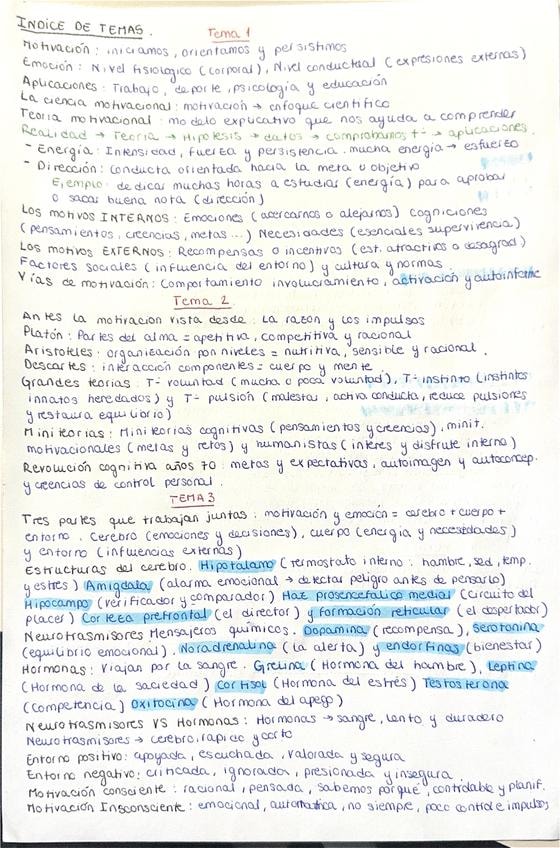 INDICE DE TEMAS.
Tema 1
Motivación: iniciamos, orientamos y persistimos
Emoción: Nivel fisiologico (corporal), Nivel conductual (expresiones externas)
Aplicaciones: Trabajo, deporte, psicología y educación
La ciencia motivacional: motivación → enfoque científico
Teoria motivacional: modelo explicativo que nos ayuda a comprender
Realidad → Teoria → Hipotesis → datos → comprobamos t- → aplicaciones.
- Energía: Intensidad, fuerza y persistencia. mucha energía → esfuerzo
- Dirección: conducta orientada hacia la meta u objetivo
Ejemplo: dedicar muchas horas a estudiar (energía) para aprobar
o sacar buena nota (dirección)
Los motivos INTERNOS: Emociones (acercarnos o alejarnos) Cogniciones
(pensamientos, creencias, metas...) Necesidades (esenciales supervivencia)
Los motivos EXTERNOS: Recompensas o incentivos (est. atractivos o desagrad)
Factores sociales (influencia del entorno) y cultura y normas
Vías de motivación: Comportamiento involuciamiento, activación y autoinforme
Tema 2
Antes la motivacion vista desde: la razon y los impulsos
Platón: Partes del alma = apetitiva, competitiva y racional
Aristoteles: organización por niveles = nutritiva, sensible y racional.
Descartes: interacción componentes = cuerpo y mente
Grandes teorias: T- voluntad (mucha o poca voluntad), T- instinto (instintos
innatos heredados) y T- pulsión (malestar, activa conducta, reduce pulsiones
y restaura equilibrio)
Miniteorias: Miniteorias cognitivas (pensamientos y creencias), minit.
motivacionales (metas y retos) y humanistas (interes y disfrute interno)
Revolución cognitiva años 70: metas y expectativas, autoimagen y autoconcep.
y creencias de control personal.
TEMA 3
Tres partes que trabajan juntas: motivación y emoción = cerebro + cuerpo +
entorno. Cerebro (emociones y decisiones), cuerpo (energía y necesidades)
y entorno (influencias externas)
Estructuras del cerebro. Hipotalamo (termostato interno: hambre, sed, temp.
y estres) Amigdala (alarma emocional → detectar peligro antes de pensarlo)
Hipocampo (verificador y comparador) Haz prosencefalico medial (circuito del
placer) Corteza prefrontal (el director) y formación reticular (el despertador)
Neurotrasmisores Mensajeros químicos. Dopamina (recompensa), Serotonina
(equilibrio emocional), Noradrenalina (la alerta) y endorfinas (bienestar)
Hormonas: Viajan por la sangre. Grelina (Hormona del hambre), Leptina
(Hormona de la saciedad) Cortisol (Hormona del estrés) Testosterona
(competencia) Oxitocina (Hormona del apego)
Neurotrasmisores VS Hormonas: Hormonas → sangre, lento y duradero
Neurotrasmisores → cerebro, rapido y corto
Entorno positivo: apoyada, escuchada, valorada y segura
Entorno negativo: criticada, ignorada, presionada y insegura
Motivación consciente: racional, pensada, sabemos porqué, controlable y planif.
Motivación Insconsciente: emocional, automatica, no siempre, poco control e impulsos